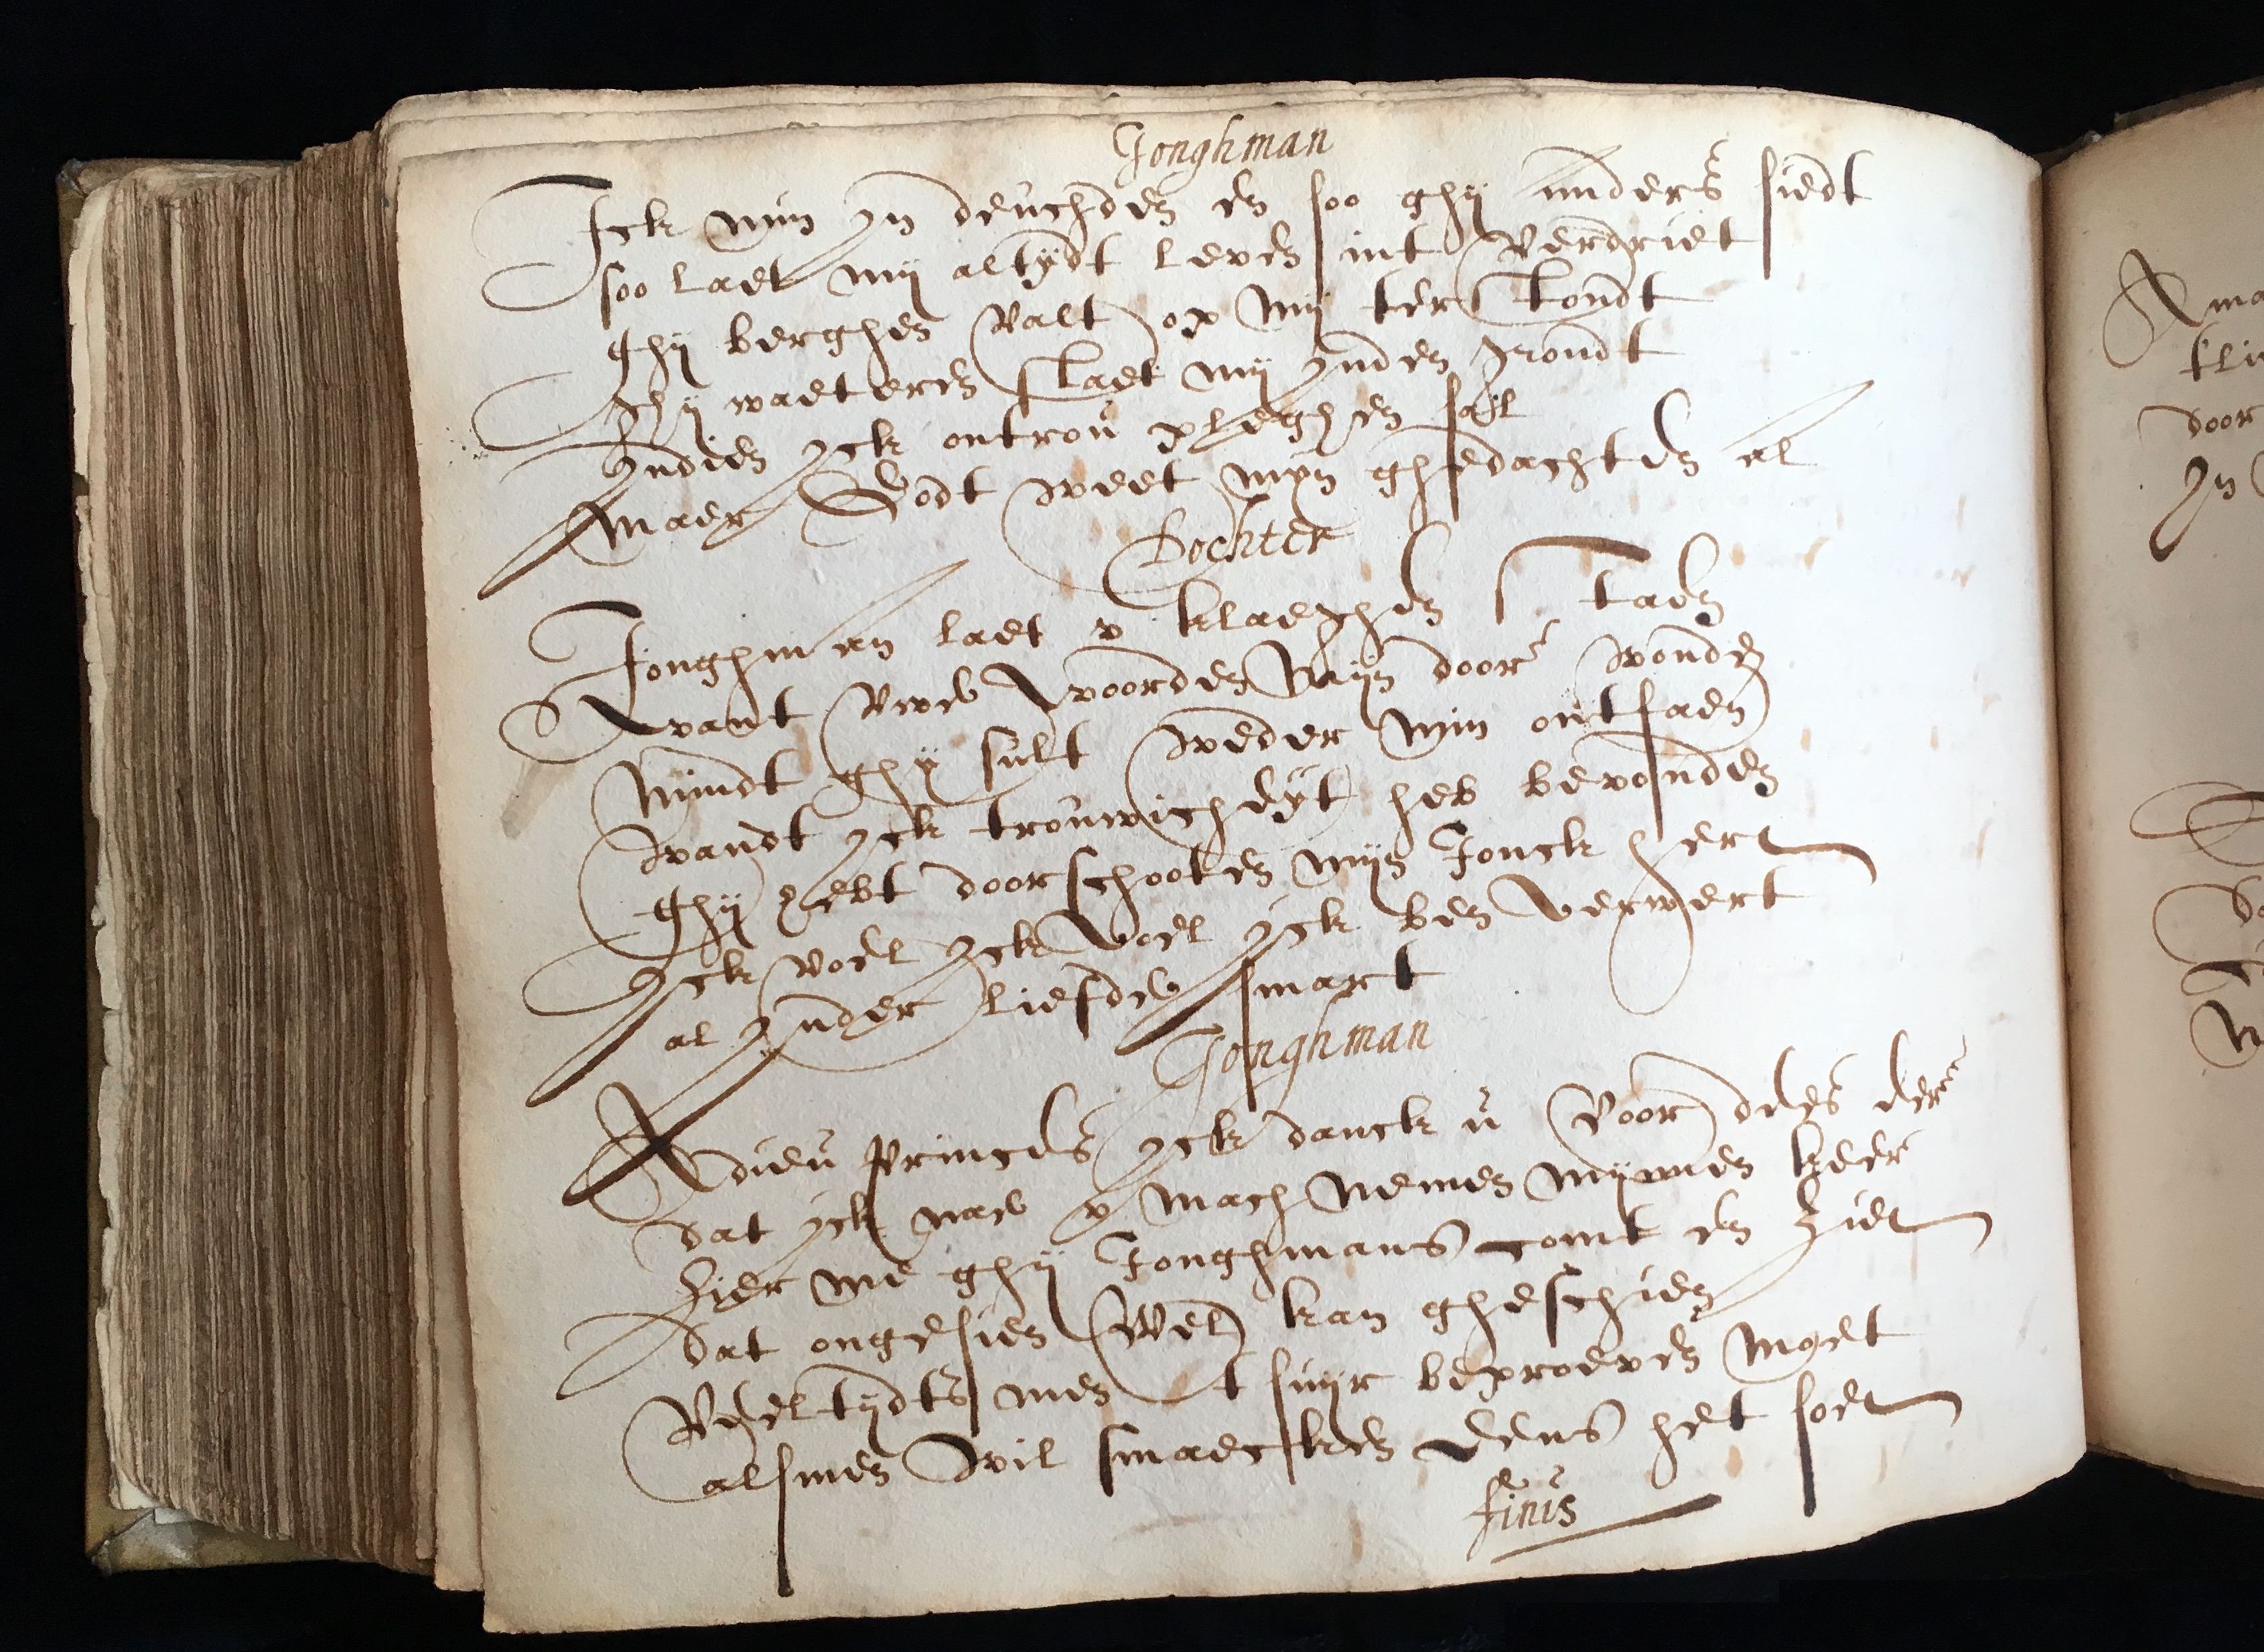 Jonghman
Ick min yn deuchden en soo ghy anders siedt
soo laet my altydt leven int verdriet
ghy berghen valt op my ter stondt
Ghy waeteren slaet my inden grondt
Indien yck ontrou pleghen sal
Maer Godt weet myn ghedachten al
Dochter
Jonghman laet v klaeghen staen
Want vwe woorden myn door wonden
Mindt ghy sult weder min ontfaen
Wandt yck trouwicheyt heb bevonden
Ghy hebt doorschooten myn Jonck hert
Yck voel yck voel yck ben verwert
al inder liefde smart
Jonghman
Adieu Princes yck danck u voor dees eer
dat yck nae v mach nemen mynnen keer
Hier me ghy Jonghmans comt en ziet
Dat ongesien wel kan gheschien
Veeltydts men t suyr beproeven moet
alsmen wil smaecken eens het soet
finis
Ama
kli
door
In